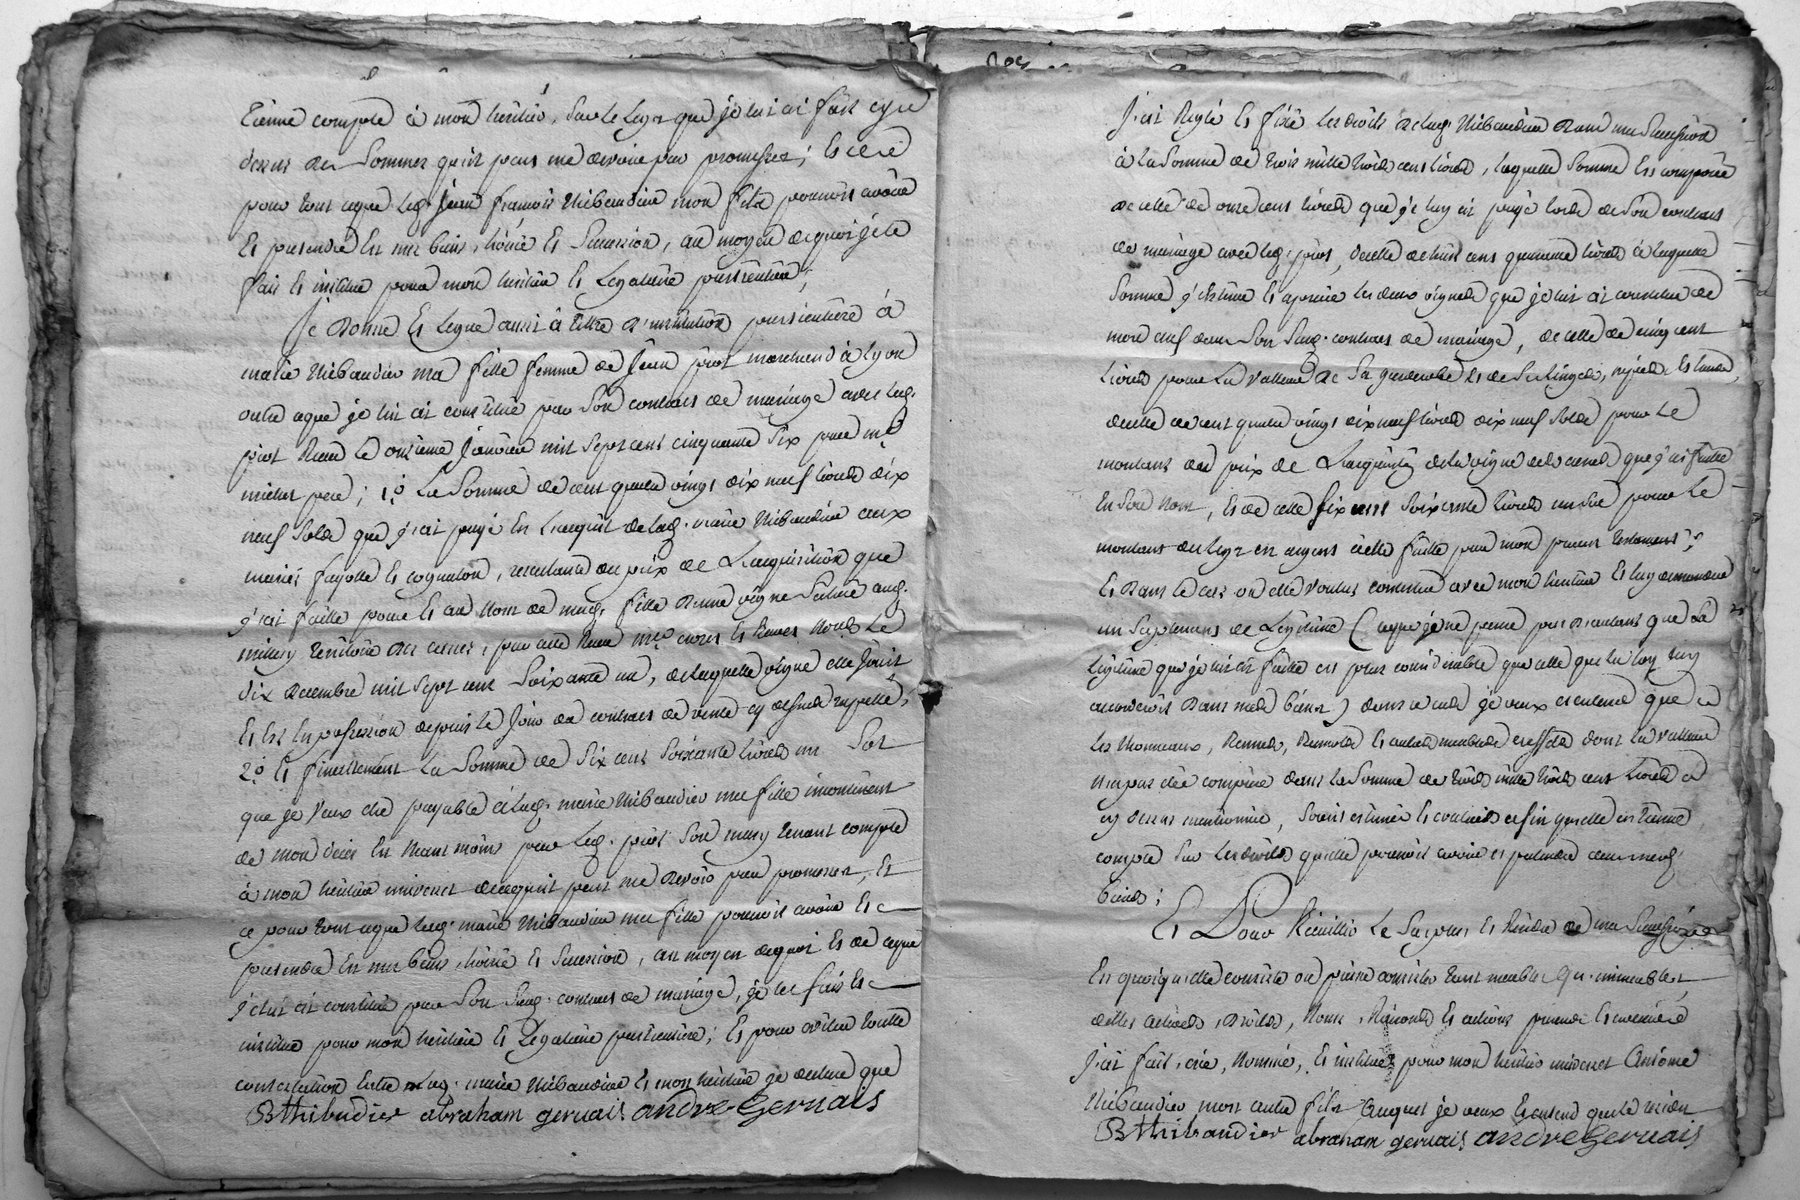 tienne compte à mon héritié, sur le legs que je lui ai fait cy
dessus des sommes qu'il peut me devoir par promesses; et ce
pour tout ce que led. Jean françois thibaudier mon fils pourroit avoir
et prétendre en mes biens, hoirie et succession, au moyen de quoi je le
fais et institue pour mon héritier et légataire particulier;
Je donne et legue aussi à titre d'institution particulière à
marie thibaudier ma fille femme de Jean piot marchand à lyon
outre ce que je lui ai constitué par son contract de mariage avec led.
piot reçu le onzième Janvier mil sept cent cinquante six par me
michet pere; 1o la somme de cent quatre vingt dix neuf livres dix
neuf sols que j'ai payé en l'acquit de lad. marie thibaudier aux
mariés fayolle et coquelon, restante du prix de l'acquisition que
j'ai faitte pour et au nom de mad. fille d'une vigne située aud.
millery territoire des, par acte reçu me et nous le
dix decembre mil sept cent soixante un, de laquelle vigne elle Jouit
et est en possession depuis le Jour du contract de vente cy dessus rappellé,
2o et finallement la somme de six cent soixante livres un sol
que je veux etre payable à lad. marie thibaudier ma fille incontinent
de mon décès en tenant moins par led. piot son mary tenant compte
à mon héritier universel de ce qu'il peut me devoir par promesses, et
ce pour tout ce que lad. marie thibaudier ma fille pourroit avoir et
prétendre en mes biens, hoirie et succession, au moyen de quoi et de ce que
j'elui ai constitué par son sud. contract de mariage, je la fais et
institue pour mon héritière et légataire particulière; et pour éviter toutte
contestation entre lad. marie thibaudier et mon héritier je declare que
B thibaudier abraham gervais andré Gervais
J'ai réglé et fixé les droits de lad. thibaudier dans ma succession
à la somme de trois mille trois cens livres, laquelle somme est composée
de celle de onze cens livres que je luy ai payé lors de son contract
de mariage avec led. piot, de celle de huit cens quarante livres à laquelle
somme j'estime et aprécie les deux vignes que je lui ai constitué de
mon chef dans son sud. contract de mariage, de celle de cinq cent
livres pour la valleur de sa garderobe et de ses linges,
de celle de cent quatre vingt dix neuf livres dix neuf sols pour le
montant du prix de l'acquisition de la vigne des que j'ai faitte
en son nom, et de celle six cens soixante livres un sol pour le
montant du legs en argent à elle faitte par mon présent testament;
et dans le cas où elle voulut contester avec mon héritier et luy demander
un suplement de légitime (ce que je ne pense pas d'autant que la
légitime que je lui ai faitte est plus considérable que celle que la loy luy
accorderoit dans mes biens) dans ce cas je veux et entend que
les et autres meubles et effets dont la valleur
n'a pas été comprise dans la somme de trois mille trois cent livres
cy dessus mentionnée, soient estimés et évalués afin qu'elle en tienne
compte sur les droits qu'elle pourroit avoir et prétendre dans mesd.
biens;
Et Pour Recueillir le surplus et résidu de ma succession
en quoi qu'elle consiste ou puisse consister tant meubles qu'immeubles,
dettes actives, droits, noms, raisons et actions présents et avenirs
j'ai fait, créé, nommé, et institué pour mon héritié universel Antoine
thibaudier mon autre fils auquel je veux et entend que le résidu
B thibaudier abraham gervais andré Gervais